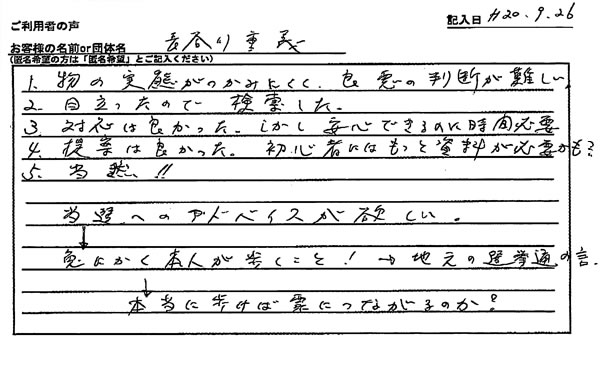 ご利用者の声
記入日 H20.9.26
お客様の名前or団体名 長谷川重義
(匿名希望の方は「匿名希望」とご記入ください)
1. 物の実態がつかみにくく、良悪の判断が難しい。
2. 目立ったので検索した。
3. 対応は良かった。しかし安心できるのに時間必要
4. 提案は良かった。初心者にはもっと資料が必要かも?
5. 当然!!
当選へのアドバイスが欲しい。
↓
兎にかく本人が歩くこと! → 地元の選挙通の言。
↓
本当に歩けば票につながるのか?